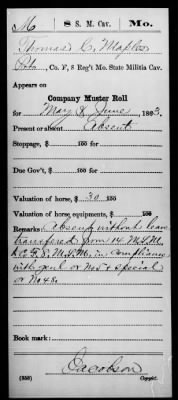 M 8 S. M. Cav. Mo.
Thomas C. Maples
Pvt., Co. F, 8 Reg't Mo. State Militia Cav.
Appears on
Company Muster Roll
for May & June, 1863.
Present or absent Absent
Stoppage, $ 100 for
Due Gov't, $ 100 for
Valuation of horse, $ 30 100
Valuation of horse equipments, $ 100
Remarks: Absent without leave
transfered from 14 M.S.M.
to Co F. 8. M.S.M. in compliance
with genl or No 5 & special
or No 48.
Book mark:
Jacobson
(358) Copyist.